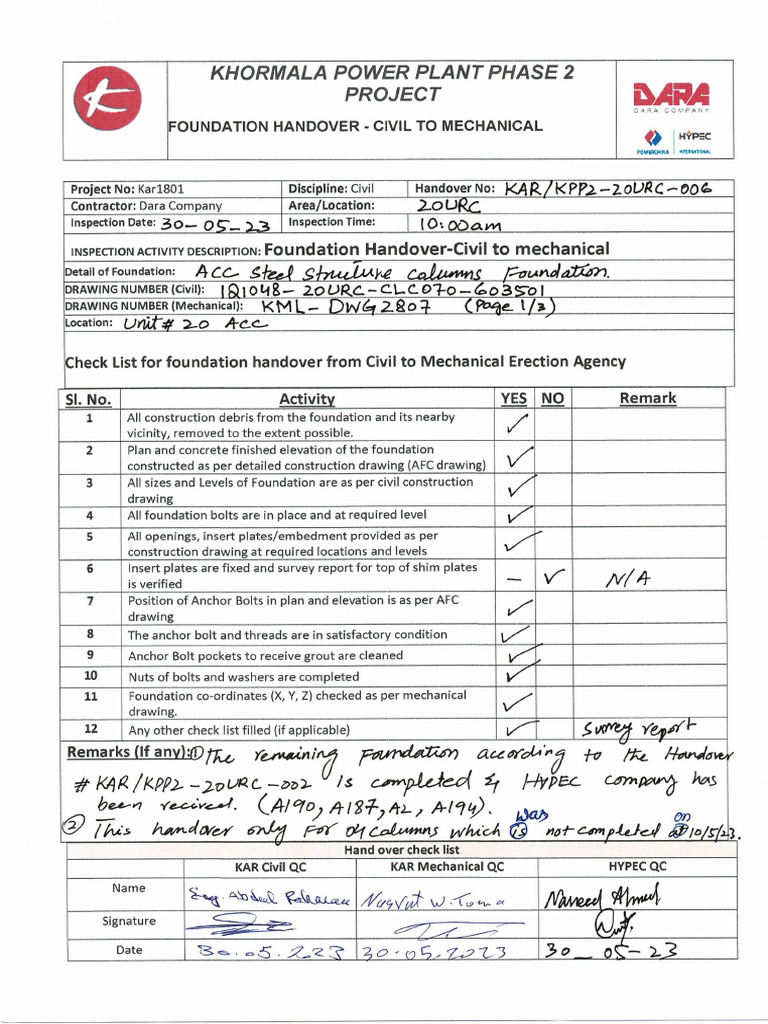 KHORMALA POWER PLANT PHASE 2
PROJECT
FOUNDATION HANDOVER - CIVIL TO MECHANICAL
K
DARA
DARA COMPANY
POWERCHINA
HYPEC
INTERNATIONAL
Project No: Kar1801 Discipline: Civil Handover No: KAR/KPP2-20URC-006
Contractor: Dara Company Area/Location: 20URC
Inspection Date: 30-05-23 Inspection Time: 10:00am
INSPECTION ACTIVITY DESCRIPTION: Foundation Handover-Civil to mechanical
Detail of Foundation: ACC Steel Structure calumns Foundation.
DRAWING NUMBER (Civil): 1Q1048-20URC-CLC070-603501
DRAWING NUMBER (Mechanical): KML-DWG2807 (Page 1/3)
Location: Unit# 20 ACC
Check List for foundation handover from Civil to Mechanical Erection Agency
Sl. No. Activity YES NO Remark
1 All construction debris from the foundation and its nearby
vicinity, removed to the extent possible. ✓
2 Plan and concrete finished elevation of the foundation
constructed as per detailed construction drawing (AFC drawing) ✓
3 All sizes and Levels of Foundation are as per civil construction
drawing ✓
4 All foundation bolts are in place and at required level ✓
5 All openings, insert plates/embedment provided as per
construction drawing at required locations and levels ✓
6 Insert plates are fixed and survey report for top of shim plates
is verified – ✓ N/A
7 Position of Anchor Bolts in plan and elevation is as per AFC
drawing ✓
8 The anchor bolt and threads are in satisfactory condition ✓
9 Anchor Bolt pockets to receive grout are cleaned ✓
10 Nuts of bolts and washers are completed ✓
11 Foundation co-ordinates (X, Y, Z) checked as per mechanical
drawing. ✓
12 Any other check list filled (if applicable) ✓ Survey report
Remarks (If any): ① The remaining Foundation according to the Handover
# KAR/KPP2-20URC-002 is completed & HYPEC company has
been recived. (A190, A187, A2, A194).
was on
② This handover only For 04 calumns which is not completed at 10/5/23.
Hand over check list
KAR Civil QC KAR Mechanical QC HYPEC QC
Name Eng. Abdul Naveed Ahmed
Signature
Date 30.05.2023 30.05.2023 30_05-23